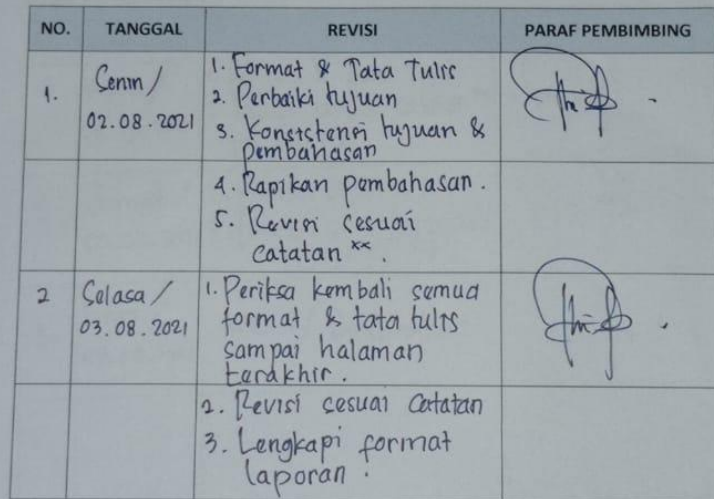 NO. TANGGAL REVISI PARAF PEMBIMBING
1. Senin / 1. Format & Tata Tulis
02.08.2021 2. Perbaiki tujuan
3. Konsistensi tujuan &
pembahasan
4. Rapikan pembahasan.
5. Revisi sesuai
catatan **.
2 Selasa / 1. Periksa kembali semua
03.08.2021 format & tata tulis
sampai halaman
terakhir.
2. Revisi sesuai catatan
3. Lengkapi format
laporan.